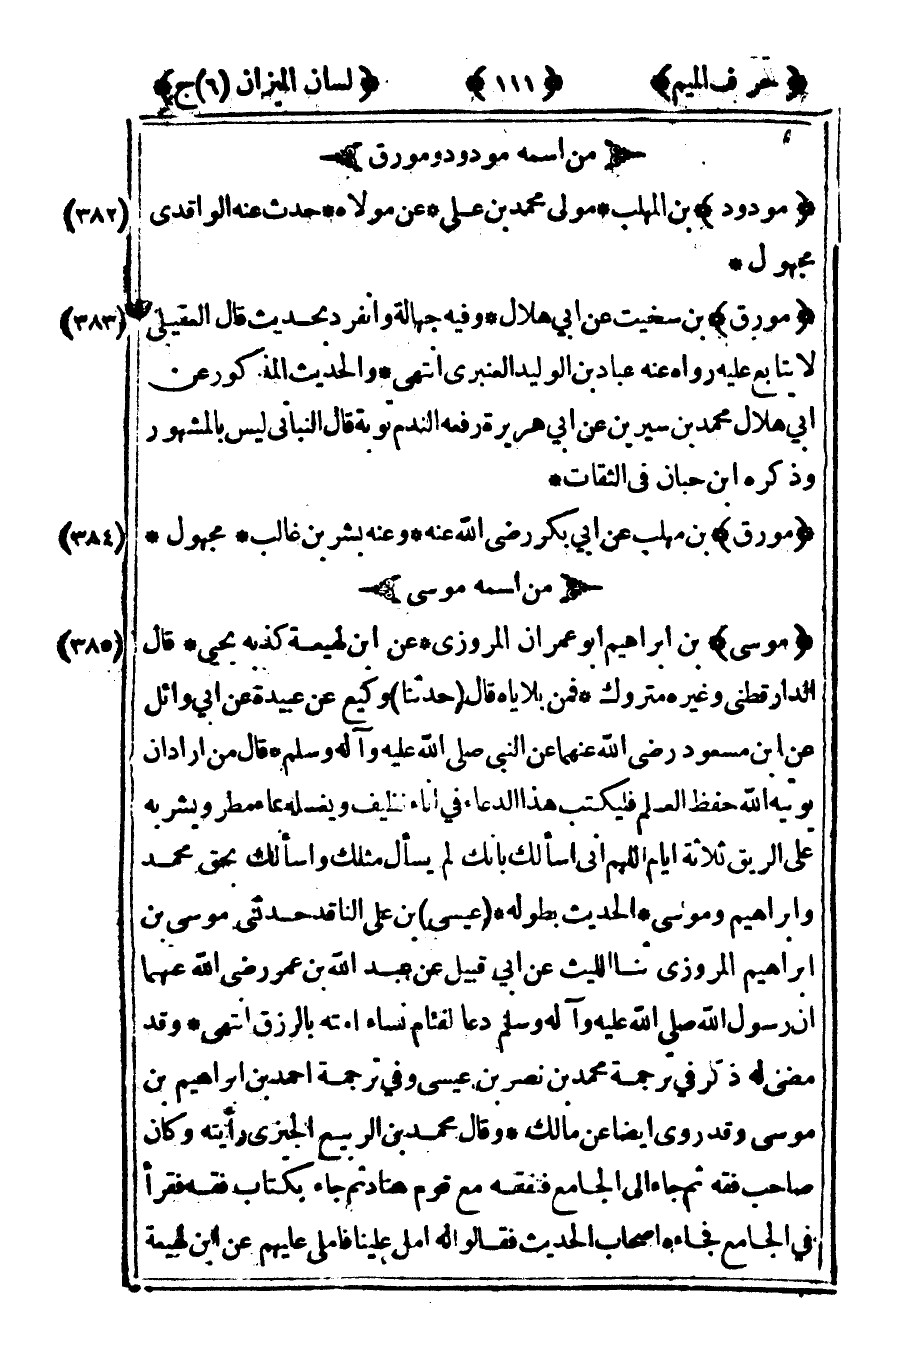 ﴿ حرف الميم ﴾ ﴿ ١١١ ﴾ ﴿ لسان الميزان (٦) ج ﴾
من اسمه مودود ومورق
﴿ مودود ﴾ بن المهلب * مولى محمد بن علي * عن مولاه * حدث عنه الواقدى (٣٨٢)
مجهول *
﴿ مورق ﴾ بن سخيت عن ابي هلال * وفيه جهالة وانفرد بحديث قال العقيلي (٣٨٣)
لا يتابع عليه رواه عنه عباد بن الوليد العنبرى انتهى * والحديث المذكور عن
ابي هلال محمد بن سيرين عن ابي هريرة رفعه الندم توبة قال النباتى ليس بالمشهور
وذكره ابن حبان فى الثقات *
﴿ مورق ﴾ بن مهلب عن ابي بكر رضى الله عنه * وعنه بشر بن غالب * مجهول * (٣٨٤)
من اسمه موسى
﴿ موسى ﴾ بن ابراهيم ابو عمران المروزى * عن ابن لهيعة كذبه يحيى * قال (٣٨٥)
الدارقطنى وغيره متروك * فمن بلاياه قال (حدثنا) وكيع عن عبيدة عن ابي وائل
عن ابن مسعود رضى الله عنهما عن النبى صلى الله عليه وآله وسلم * قال من اراد ان
يوتيه الله حفظ العلم فليكتب هذا الدعاء في اناء نظيف ويغسله بماء مطر ويشربه
على الريق ثلاثة ايام اللهم انى اسألك بانك لم يسأل مثلك واسألك بحق محمد
وابراهيم وموسى * الحديث بطوله * (عيسى) بن على الناقد حدثنى موسى بن
ابراهيم المروزى ثنا الليث عن ابي قبيل عن عبد الله بن عمر رضى الله عنهما
ان رسول الله صلى الله عليه وآله وسلم دعا لفئام نساء امته بالرزق انتهى * وقد
مضى له ذكر في ترجمة محمد بن نصر بن عيسى وفي ترجمة احمد بن ابراهيم بن
موسى وقد روى ايضا عن مالك * وقال محمد بن الربيع الجيزى رأيته وكان
صاحب فقه ثم جاء الى الجامع فتفقه مع قوم هناد ثم جاء بكتاب فقه فقرأ
في الجامع فجاءه اصحاب الحديث فقالوا له امل علينا فاملى عليهم عن ابن لهيعة